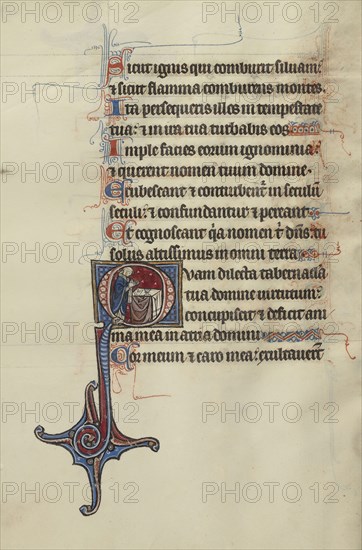 Sicut ignis qui comburit silvam:
& sicut flamma comburens montes.
Ita persequeris illos in tempestate
tua: & in ira tua turbabis eos.
Imple facies eorum ignominia:
& querent nomen tuum domine.
Erubescant & conturbent' in seculū
seculi: & confundantur & pereant.
Et cognoscant q̇a nomen t' dn̄s: tu
solus altissimus in omni terra.
Quam dilecta tabernacula
tua domine virtutum:
concupiscit & deficit ani
ma mea in atria domini.
Cor meum & caro mea: exultaverūt
PHOTO12